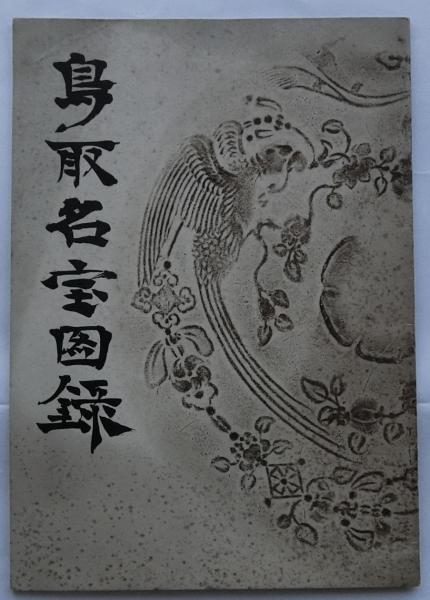 鳥取名宝図録